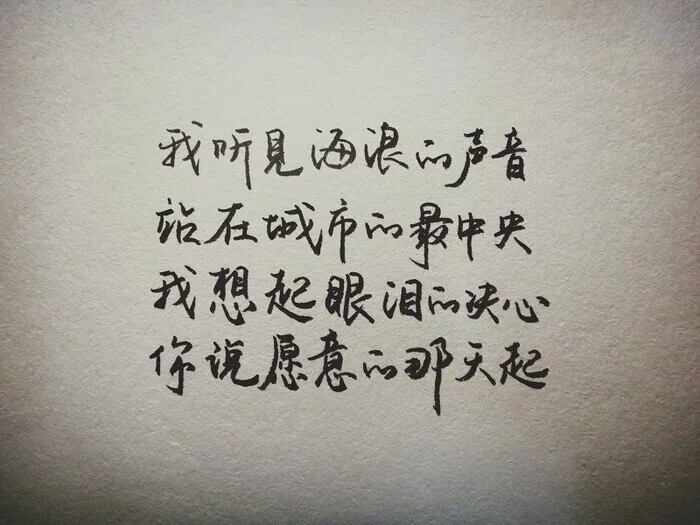 我听见海浪的声音
站在城市的最中央
我想起眼泪的决心
你说愿意的那天起